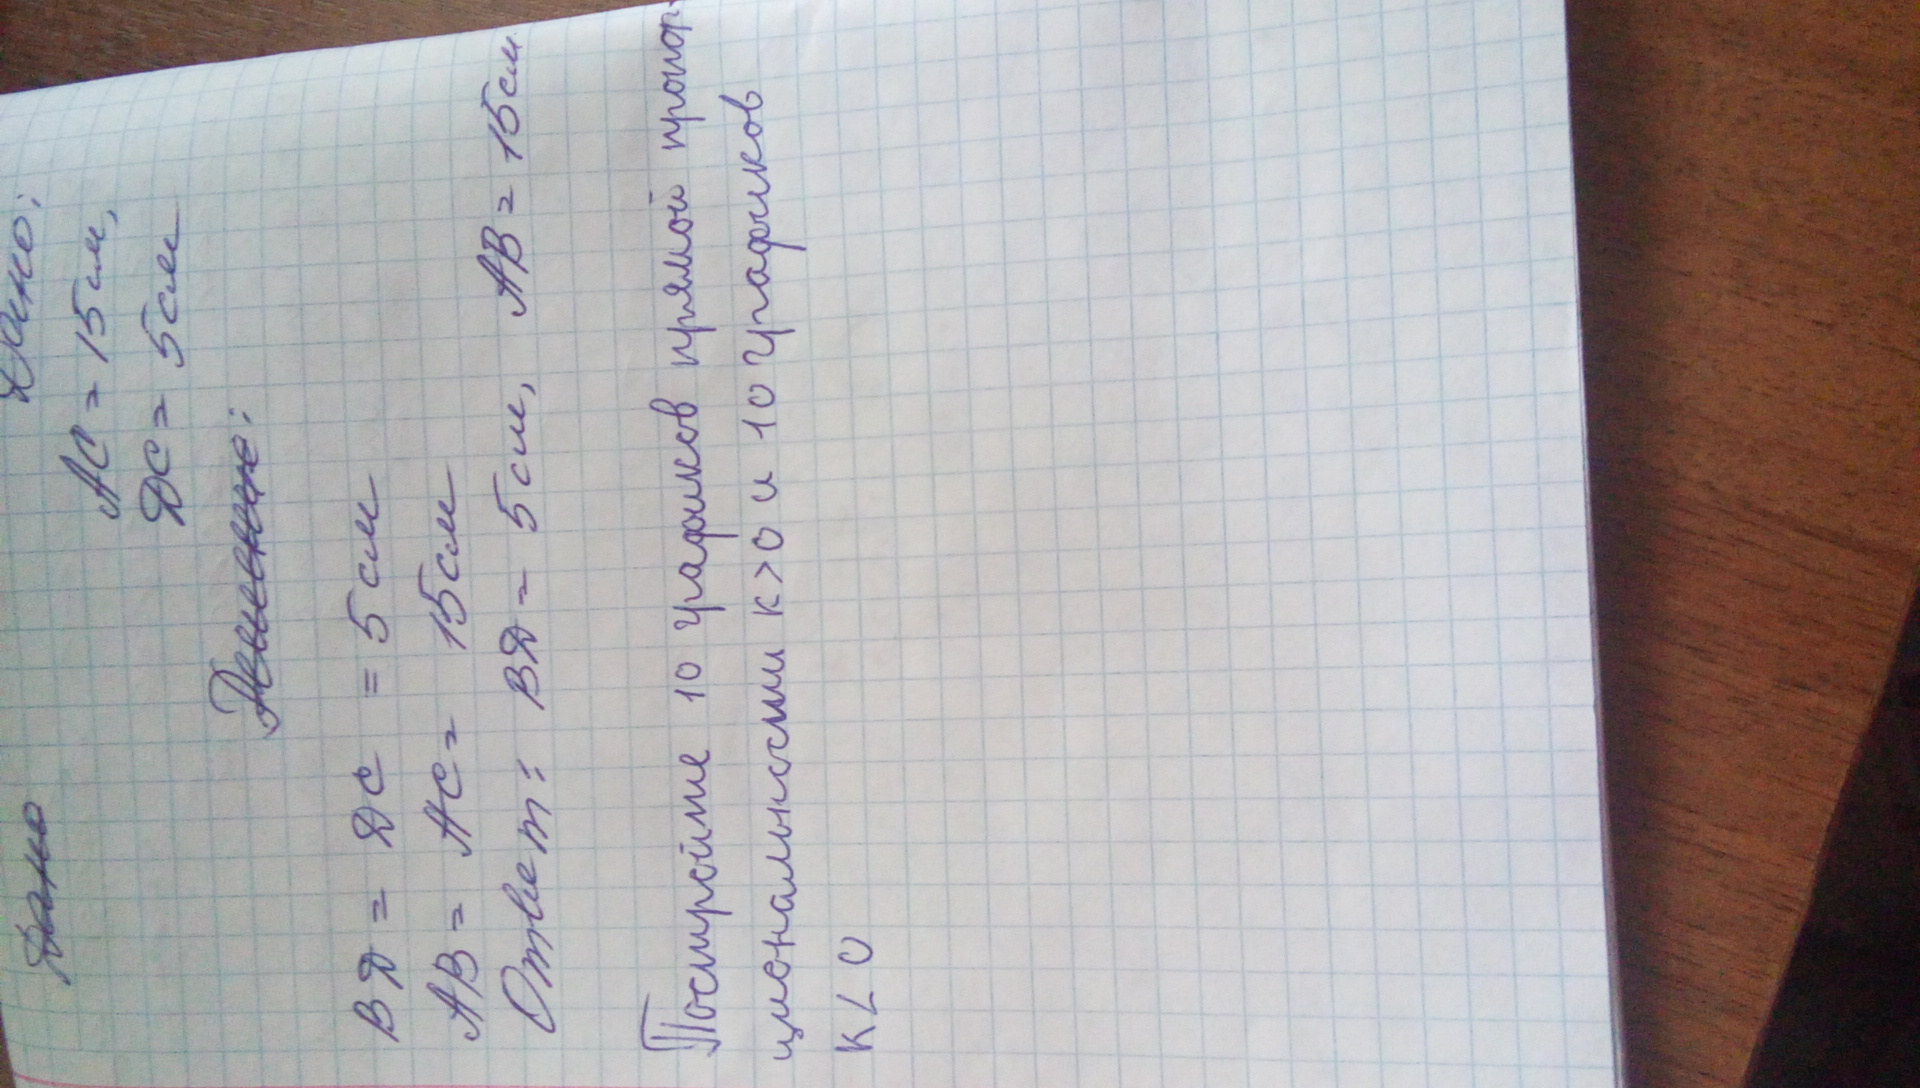 Дано
Дано:
АС = 15см,
DС = 5см
Решение:
ВD = DС = 5см
АВ = АС = 15см
Ответ: ВD = 5см, АВ = 15см
Постройте 10 графиков прямой пропор-
циональности к>0 и 10 графиков
к<0